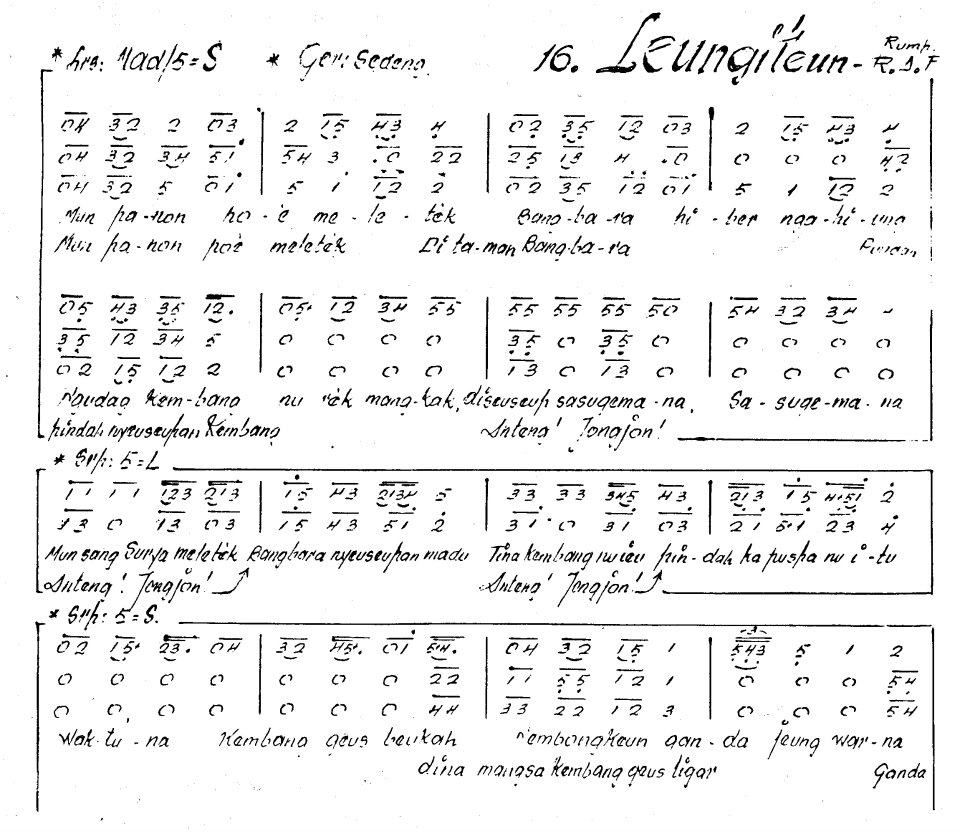 * Lrs: Mad/5=S * Ger: Sedeng. 16. Leungiteun - Rump. R.D.F
04 32 2 03 | 2 15 43 4 | 02 35 12 03 | 2 15 43 4
04 32 34 51 | 54 3 .0 22 | 25 13 4 .0 | 0 0 0 42
04 32 5 01 | 5 1 12 2 | 02 35 12 01 | 5 1 12 2
Mun pa-non po-é me-le-ték Bang-ba-ra hi-ber nga-hi-ung
Mun pa-non poé meleték Di ta-man Bangba-ra
05 43 35 12. | 05 12 34 55 | 55 55 55 50 | 54 32 34
35 12 34 5 | 0 0 0 0 | 35 0 35 0 | 0 0 0 0
02 15 12 2 | 0 0 0 0 | 13 0 13 0 | 0 0 0 0
Ngudag Kem-bang nu rék mang-kak, diseuseup sasugema-na, Sa-sugema-na
pindah nyeuseupan Kembang Anteng! Jongjon!
* Srp: 5=L
11 11 123 213 | 15 43 2134 5 | 33 33 345 43 | 213 15 4.51 2
13 0 13 03 | 15 43 51 2 | 31 0 31 03 | 21 51 23 4
Mun sang Surya meleték Bangbara nyeuseupan madu Tina Kembang nu ieu pin-dah ka puspa nu i-tu
Anteng! Jongjon! Anteng! Jongjon!
* Srp: 5=S.
02 15 23. 04 | 32 45. 01 54. | 04 32 15 1 | 543 5 1 2
0 0 0 0 | 0 0 0 22 | 11 55 12 1 | 0 0 0 54
0 0 0 0 | 0 0 0 44 | 33 22 12 3 | 0 0 0 54
Wak-tu-na Kembang geus beukah Nembongkeun gan-da jeung war-na
dina mangsa Kembang geus ligar Ganda